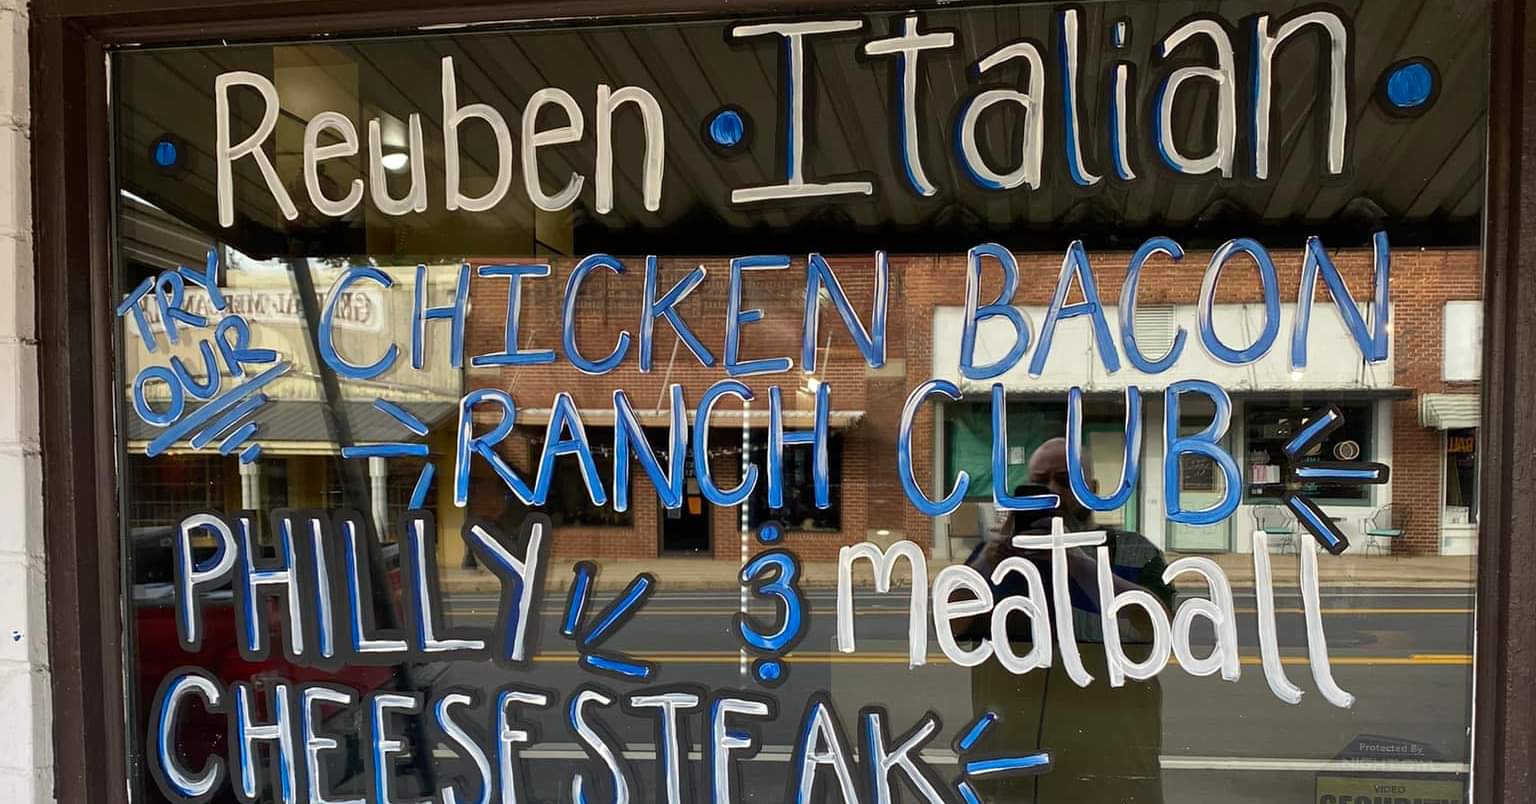 • Reuben • Italian •
TRY OUR
CHICKEN BACON
RANCH CLUB
PHILLY & meatball
CHEESESTEAK
Protected By
NIGHT OWL
VIDEO
SECURITY